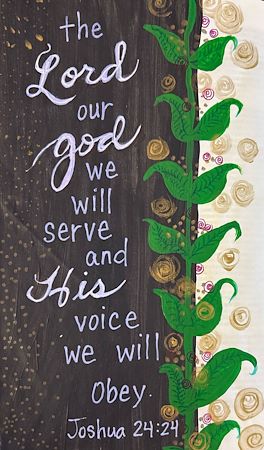 the
Lord
our
god
we
will
serve
and
His
voice
we will
Obey.
Joshua 24:24